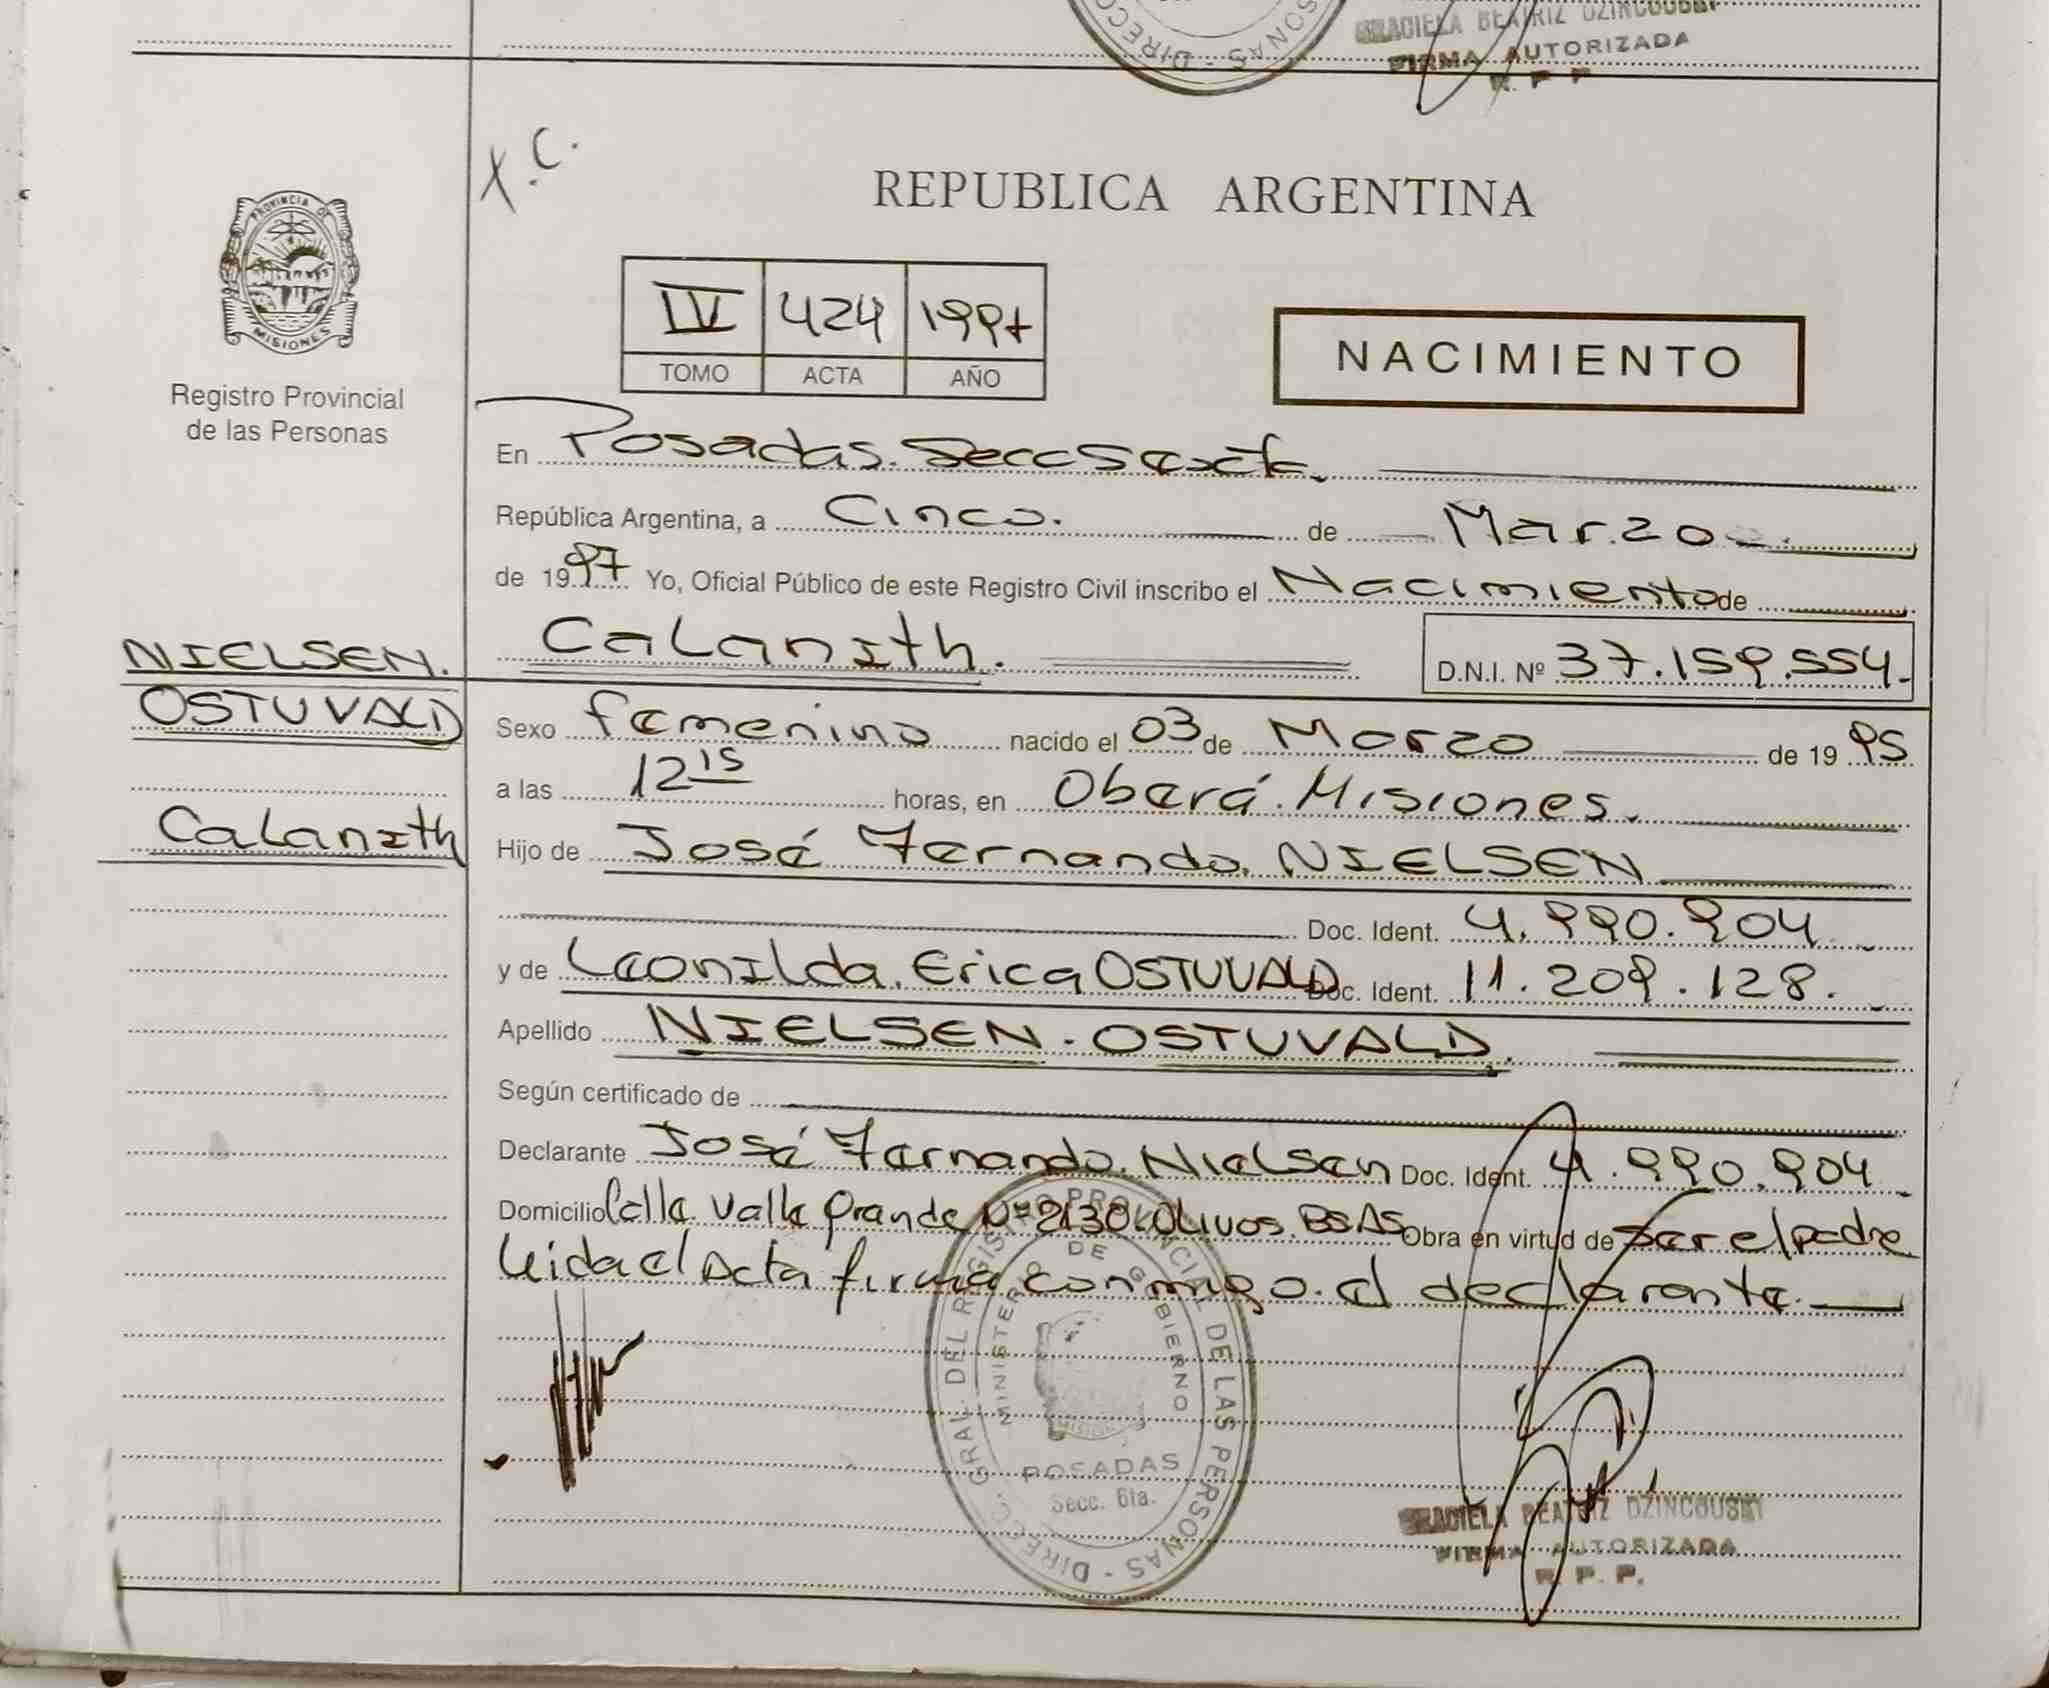 GRACIELA BEATRIZ DZINCOUSKY
FIRMA AUTORIZADA
R. P. P.
DIRECC
SONAS
X.C.
PROVINCIA DE
MISIONES
Registro Provincial
de las Personas
REPUBLICA ARGENTINA
IV 424 1997
TOMO ACTA AÑO
NACIMIENTO
En Posadas. Secc Sexta.
República Argentina, a Cinco. de Marzo
de 1997 Yo, Oficial Público de este Registro Civil inscribo el Nacimiento de
Calanith. D.N.I. Nº 37.159.554.
NIELSEN.
OSTUVALD
Calanith
Sexo femenino nacido el 03 de Marzo de 1995
a las 12 15 horas, en Oberá. Misiones.
Hijo de José Fernando. NIELSEN
Doc. Ident. 4.990.904
y de Leonilda. Erica OSTUVALD Doc. Ident. 11.209.128.
Apellido NIELSEN. OSTUVALD.
Según certificado de
Declarante José Fernando. Nielsen Doc. Ident. 4.990.904
Domicilio Calle. Valle Grande Nº 2130. Olivos. BSAS Obra en virtud de ser el padre
leida el Acta firma conmigo. el declarante.
DIRECC. GRAL. DEL REGISTRO PROVINCIAL DE LAS PERSONAS
MINISTERIO DE GOBIERNO
MISIONES
POSADAS
Secc. 6ta.
GRACIELA BEATRIZ DZINCOUSKY
FIRMA AUTORIZADA
R. P. P.